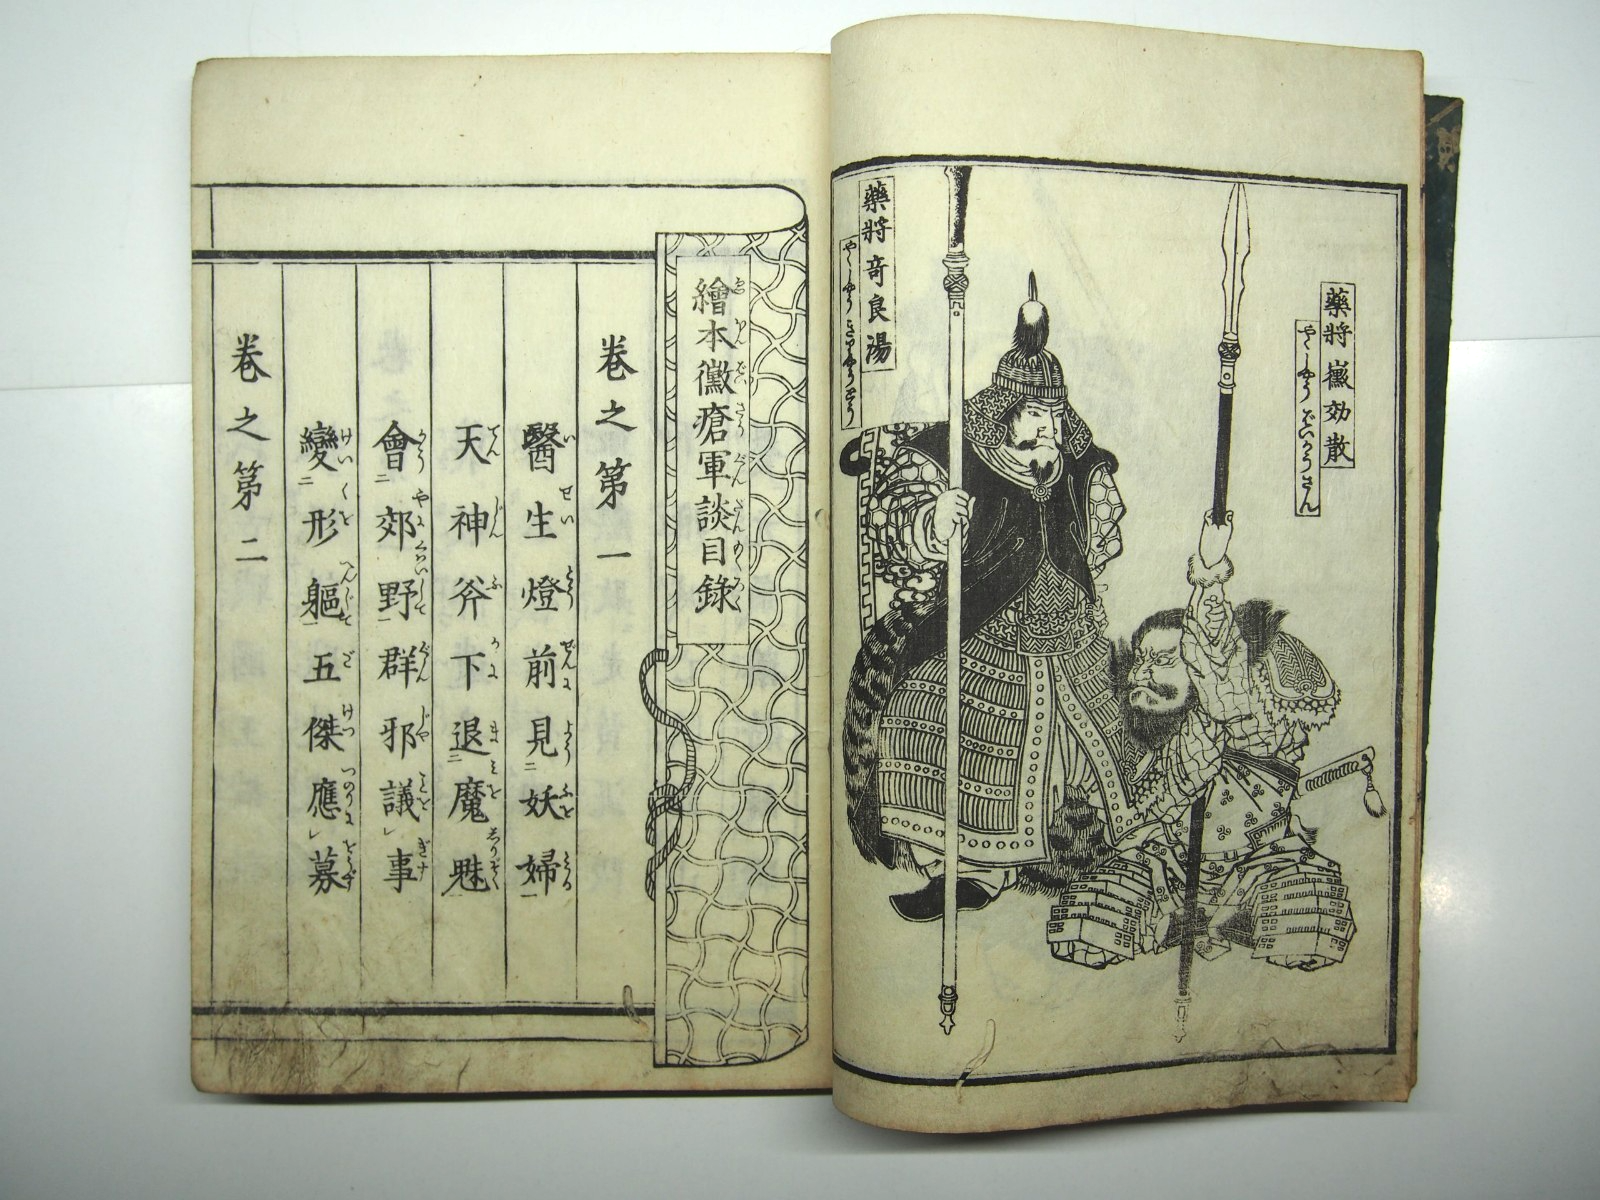 藥將黴効散
やくしやうばいかうさん
藥將竒良湯
やくしやうきりやうとう
繪本黴瘡軍談目録
巻之第一
醫生燈前見二妖婦一
天神斧下退二魔魁一
會二郊野一群邪議レ事
變二形軀一五傑應レ募
巻之第二